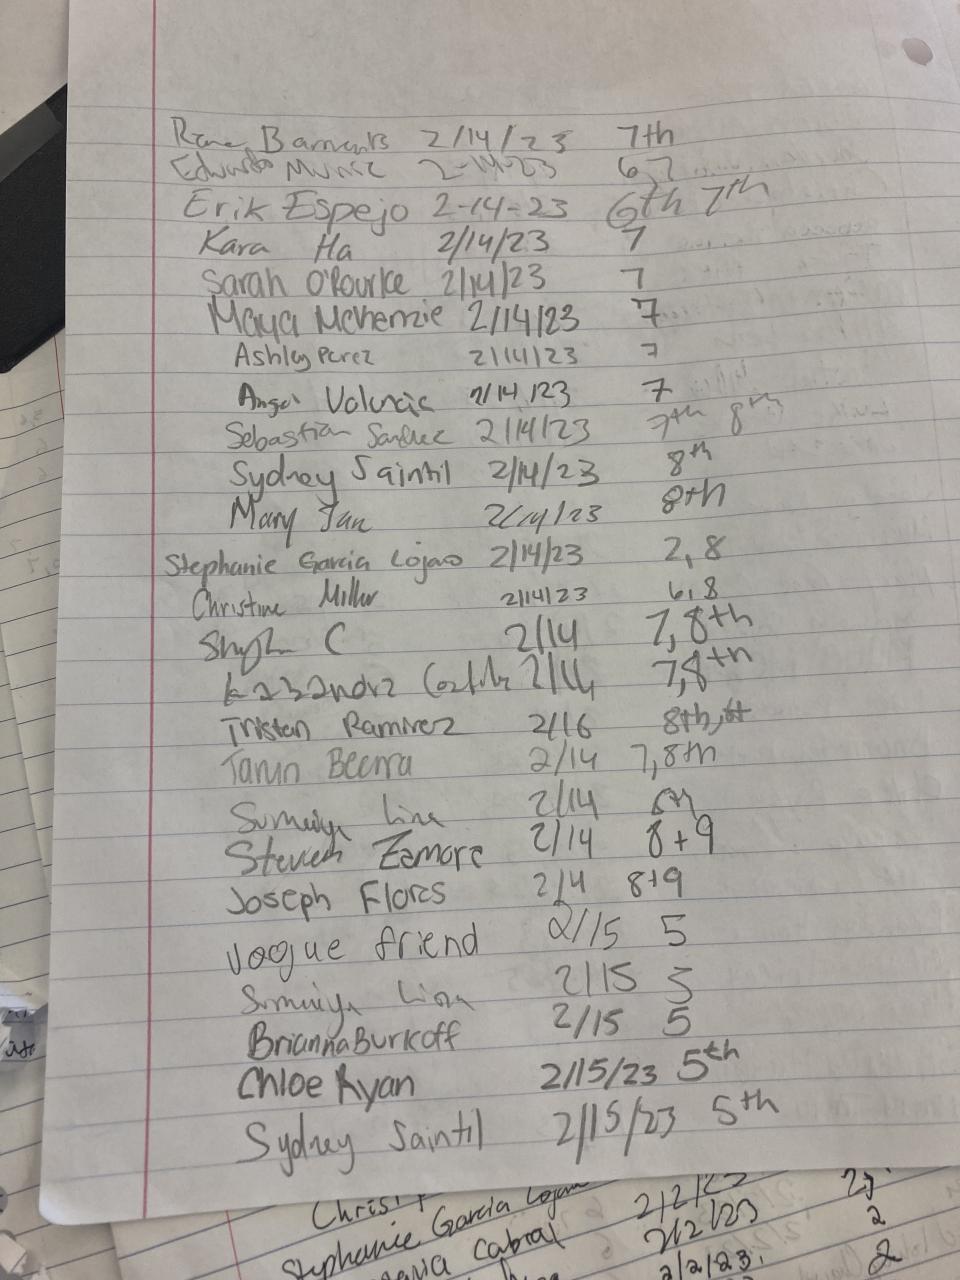 2/14/23 7th
Edwardo Muniz 2-14-23 6,7
Erik Espejo 2-14-23 6th 7th
Kara Ha 2/14/23 7
Sarah O'Rourke 2/14/23 7
Maya McKenzie 2/14/23 7
Ashley Perez 2/14/23 7
Angel 2/14/23 7
Sebastian 2/14/23 7th 8th
Sydney Saintil 2/14/23 8th
Mary 2/14/23 8th
Stephanie Garcia Lojano 2/14/23 2, 8
Christine Miller 2/14/23 6,8
C 2/14 7, 8th
2/14 7,8th
Tristen Ramirez 2/16 8th,
Beerra 2/14 7,8th
Sumaiya 2/14
Steven Zamora 2/14 8+9
Joseph Flores 2/4 8+9
Vogue friend 2/15 5
Sumaiya 2/15 5
Brianna Burkoff 2/15 5
Chloe Ryan 2/15/23 5th
Sydney Saintil 2/15/23 5th
Stephanie Garcia Lojano 2/2/23 2
Cabral 2/2/23. 2